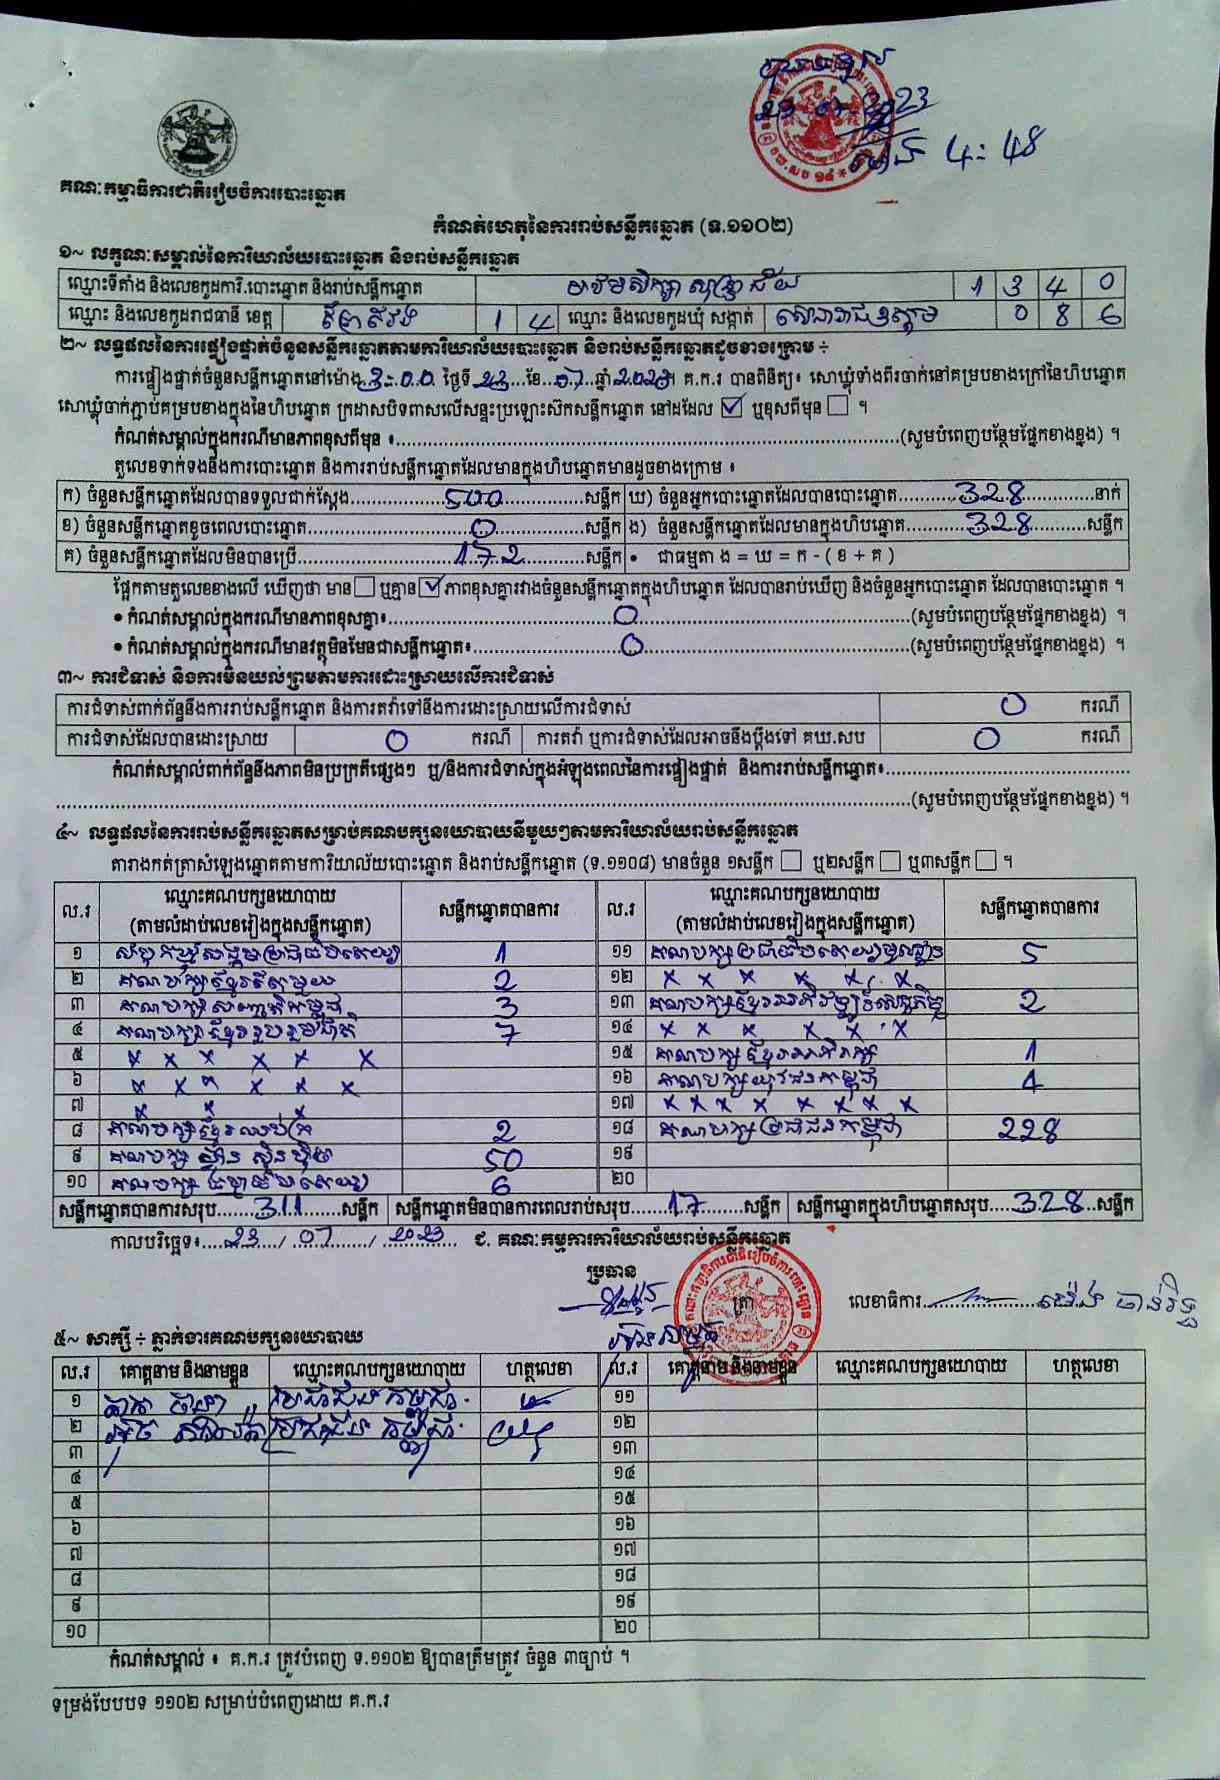 23 07 2023
ម៉ោង 4:48
គណៈកម្មាធិការជាតិរៀបចំការបោះឆ្នោត
កំណត់ហេតុនៃការរាប់សន្លឹកឆ្នោត (ទ.១១០២)
១~ លក្ខណៈសម្គាល់នៃការិយាល័យបោះឆ្នោត និងរាប់សន្លឹកឆ្នោត
ឈ្មោះទីតាំង និងលេខកូដការិ.បោះឆ្នោត និងរាប់សន្លឹកឆ្នោត 1 3 4 0
ឈ្មោះ និងលេខកូដរាជធានី ខេត្ត ព្រៃវែង 1 4 ឈ្មោះ និងលេខកូដឃុំ សង្កាត់ សេនារាជឧត្តម 0 8 6
២~ លទ្ធផលនៃការផ្ទៀងផ្ទាត់ចំនួនសន្លឹកឆ្នោតតាមការិយាល័យបោះឆ្នោត និងរាប់សន្លឹកឆ្នោតដូចខាងក្រោម ÷
ការផ្ទៀងផ្ទាត់ចំនួនសន្លឹកឆ្នោតនៅម៉ោង 3:00 ថ្ងៃទី 23 ខែ 07 ឆ្នាំ 2023។ គ.ក.រ បានពិនិត្យ៖ សោឃ្លុំទាំងពីរចាក់នៅគម្របខាងក្រៅនៃហិបឆ្នោត
សោឃ្លុំចាក់ភ្ជាប់គម្របខាងក្នុងនៃហិបឆ្នោត ក្រដាសបិទពាសលើសន្ទះប្រឡោះស៊កសន្លឹកឆ្នោត នៅដដែល ☑ ឬខុសពីមុន ☐ ។
កំណត់សម្គាល់ក្នុងករណីមានភាពខុសពីមុន ៖ (សូមបំពេញបន្ថែមផ្នែកខាងខ្នង) ។
តួលេខទាក់ទងនឹងការបោះឆ្នោត និងការរាប់សន្លឹកឆ្នោតដែលមានក្នុងហិបឆ្នោតមានដូចខាងក្រោម ៖
ក) ចំនួនសន្លឹកឆ្នោតដែលបានទទួលជាក់ស្តែង 500 សន្លឹក ឃ) ចំនួនអ្នកបោះឆ្នោតដែលបានបោះឆ្នោត 328 នាក់
ខ) ចំនួនសន្លឹកឆ្នោតខូចពេលបោះឆ្នោត 0 សន្លឹក ង) ចំនួនសន្លឹកឆ្នោតដែលមានក្នុងហិបឆ្នោត 328 សន្លឹក
គ) ចំនួនសន្លឹកឆ្នោតដែលមិនបានប្រើ 172 សន្លឹក • ជាធម្មតា ង = ឃ = ក - ( ខ + គ )
ផ្អែកតាមតួលេខខាងលើ ឃើញថា មាន ☐ ឬគ្មាន ☑ ភាពខុសគ្នារវាងចំនួនសន្លឹកឆ្នោតក្នុងហិបឆ្នោត ដែលបានរាប់ឃើញ និងចំនួនអ្នកបោះឆ្នោត ដែលបានបោះឆ្នោត ។
• កំណត់សម្គាល់ក្នុងករណីមានភាពខុសគ្នា៖ 0 (សូមបំពេញបន្ថែមផ្នែកខាងខ្នង) ។
• កំណត់សម្គាល់ក្នុងករណីមានវត្ថុមិនមែនជាសន្លឹកឆ្នោត៖ 0 (សូមបំពេញបន្ថែមផ្នែកខាងខ្នង) ។
៣~ ការជំទាស់ និងការមិនយល់ព្រមតាមការដោះស្រាយលើការជំទាស់
ការជំទាស់ពាក់ព័ន្ធនឹងការរាប់សន្លឹកឆ្នោត និងការតវ៉ាទៅនឹងការដោះស្រាយលើការជំទាស់ 0 ករណី
ការជំទាស់ដែលបានដោះស្រាយ 0 ករណី ការតវ៉ា ឬការជំទាស់ដែលអាចនឹងប្តឹងទៅ គឃ.សប 0 ករណី
កំណត់សម្គាល់ពាក់ព័ន្ធនឹងភាពមិនប្រក្រតីផ្សេងៗ ឬ/និងការជំទាស់ក្នុងអំឡុងពេលនៃការផ្ទៀងផ្ទាត់ និងការរាប់សន្លឹកឆ្នោត៖
(សូមបំពេញបន្ថែមផ្នែកខាងខ្នង) ។
៤~ លទ្ធផលនៃការរាប់សន្លឹកឆ្នោតសម្រាប់គណបក្សនយោបាយនីមួយៗតាមការិយាល័យរាប់សន្លឹកឆ្នោត
តារាងកត់ត្រាសំឡេងឆ្នោតតាមការិយាល័យបោះឆ្នោត និងរាប់សន្លឹកឆ្នោត (ទ.១១០៨) មានចំនួន ១សន្លឹក ☐ ឬ២សន្លឹក ☐ ឬ៣សន្លឹក ☐ ។
ល.រ ឈ្មោះគណបក្សនយោបាយ (តាមលំដាប់លេខរៀងក្នុងសន្លឹកឆ្នោត) សន្លឹកឆ្នោតបានការ ល.រ ឈ្មោះគណបក្សនយោបាយ (តាមលំដាប់លេខរៀងក្នុងសន្លឹកឆ្នោត) សន្លឹកឆ្នោតបានការ
១ 1 ១១ 5
២ គណបក្សខ្មែរតែមួយ 2 ១២ x x x x x x
៣ 3 ១៣ 2
៤ គណបក្សខ្មែររួបរួមជាតិ 7 ១៤ x x x x x x
៥ x x x x x x ១៥ គណបក្សខ្មែរអភិរក្ស 1
៦ x x x x x x ១៦ គណបក្សយុវជនកម្ពុជា 4
៧ x x x ១៧ x x x x x x x x
៨ គណបក្សខ្មែរឈប់ក្រ 2 ១៨ គណបក្សប្រជាជនកម្ពុជា 228
៩ គណបក្ស ហ្វ៊ុនស៊ិនប៉ិច 50 ១៩
១០ 6 ២០
សន្លឹកឆ្នោតបានការសរុប 311 សន្លឹក សន្លឹកឆ្នោតមិនបានការពេលរាប់សរុប 17 សន្លឹក សន្លឹកឆ្នោតក្នុងហិបឆ្នោតសរុប 328 សន្លឹក
កាលបរិច្ឆេទ៖ 23 / 07 / 2023 ជ. គណៈកម្មការការិយាល័យរាប់សន្លឹកឆ្នោត
ប្រធាន
ត្រា
លេខាធិការ
៥~ សាក្សី ÷ ភ្នាក់ងារគណបក្សនយោបាយ
ល.រ គោត្តនាម និងនាមខ្លួន ឈ្មោះគណបក្សនយោបាយ ហត្ថលេខា ល.រ គោត្តនាម និងនាមខ្លួន ឈ្មោះគណបក្សនយោបាយ ហត្ថលេខា
១ ប្រជាជនកម្ពុជា ១១
២ ប្រជាជនកម្ពុជា ១២
៣ ១៣
៤ ១៤
៥ ១៥
៦ ១៦
៧ ១៧
៨ ១៨
៩ ១៩
១០ ២០
កំណត់សម្គាល់ ៖ គ.ក.រ ត្រូវបំពេញ ទ.១១០២ ឱ្យបានត្រឹមត្រូវ ចំនួន ៣ច្បាប់ ។
ទម្រង់បែបបទ ១១០២ សម្រាប់បំពេញដោយ គ.ក.រ